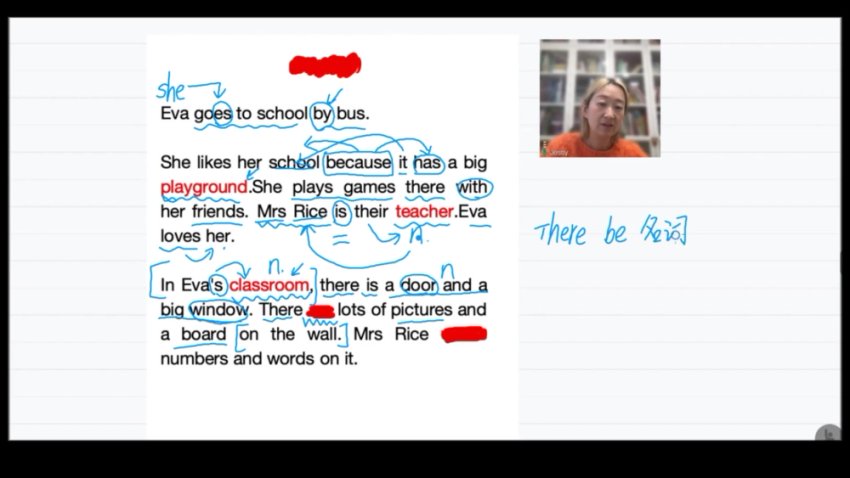 she
Eva goes to school by bus.
She likes her school because it has a big
playground.She plays games there with
her friends. Mrs Rice is their teacher.Eva
loves her.
n.
n.
n
In Eva's classroom, there is a door and a
big window. There lots of pictures and
a board on the wall. Mrs Rice
numbers and words on it.
There be 名词
Jenny